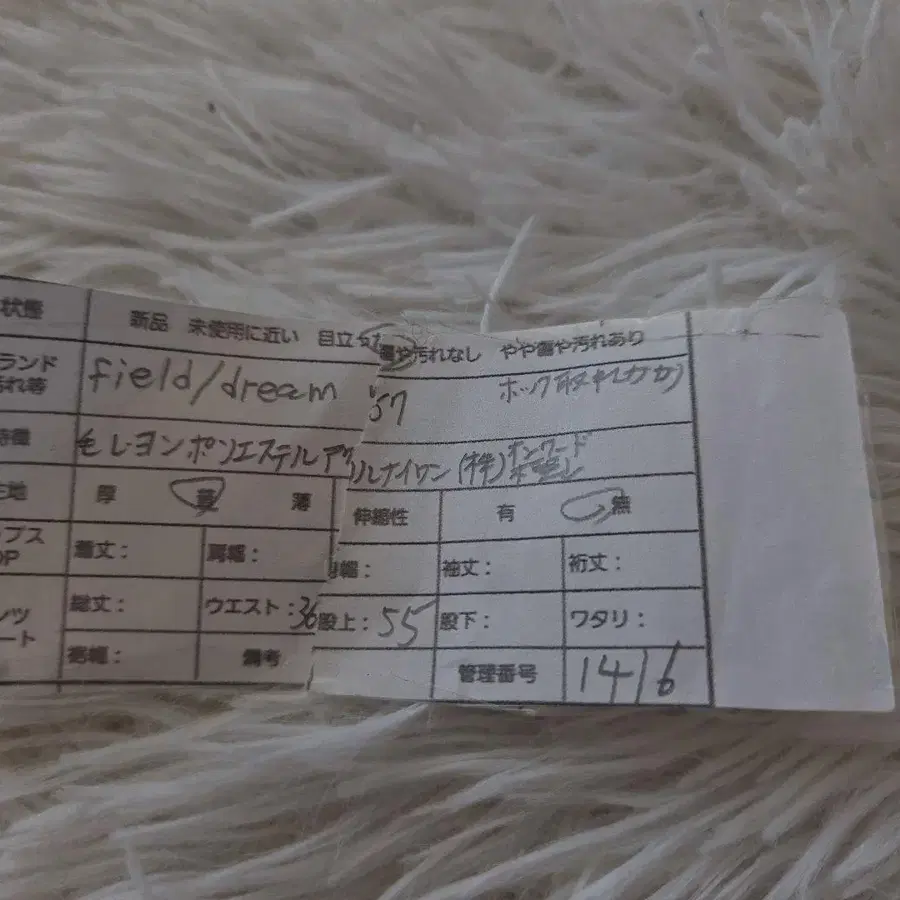 状態 新品 未使用に近い 目立 傷や汚れなし やや傷や汚れあり
ランド field/dream 57 ホック取れかかり
汚れ等
毛レーヨンポリエステルアクリルナイロン(株)オンワード
生地 厚 薄 伸縮性 有 無
ップス 着丈: 肩幅: 身幅: 袖丈: 裄丈:
OP
ンツ 総丈: ウエスト:36 股上:55 股下: ワタリ:
ート
裾幅: 備考 管理番号 1416